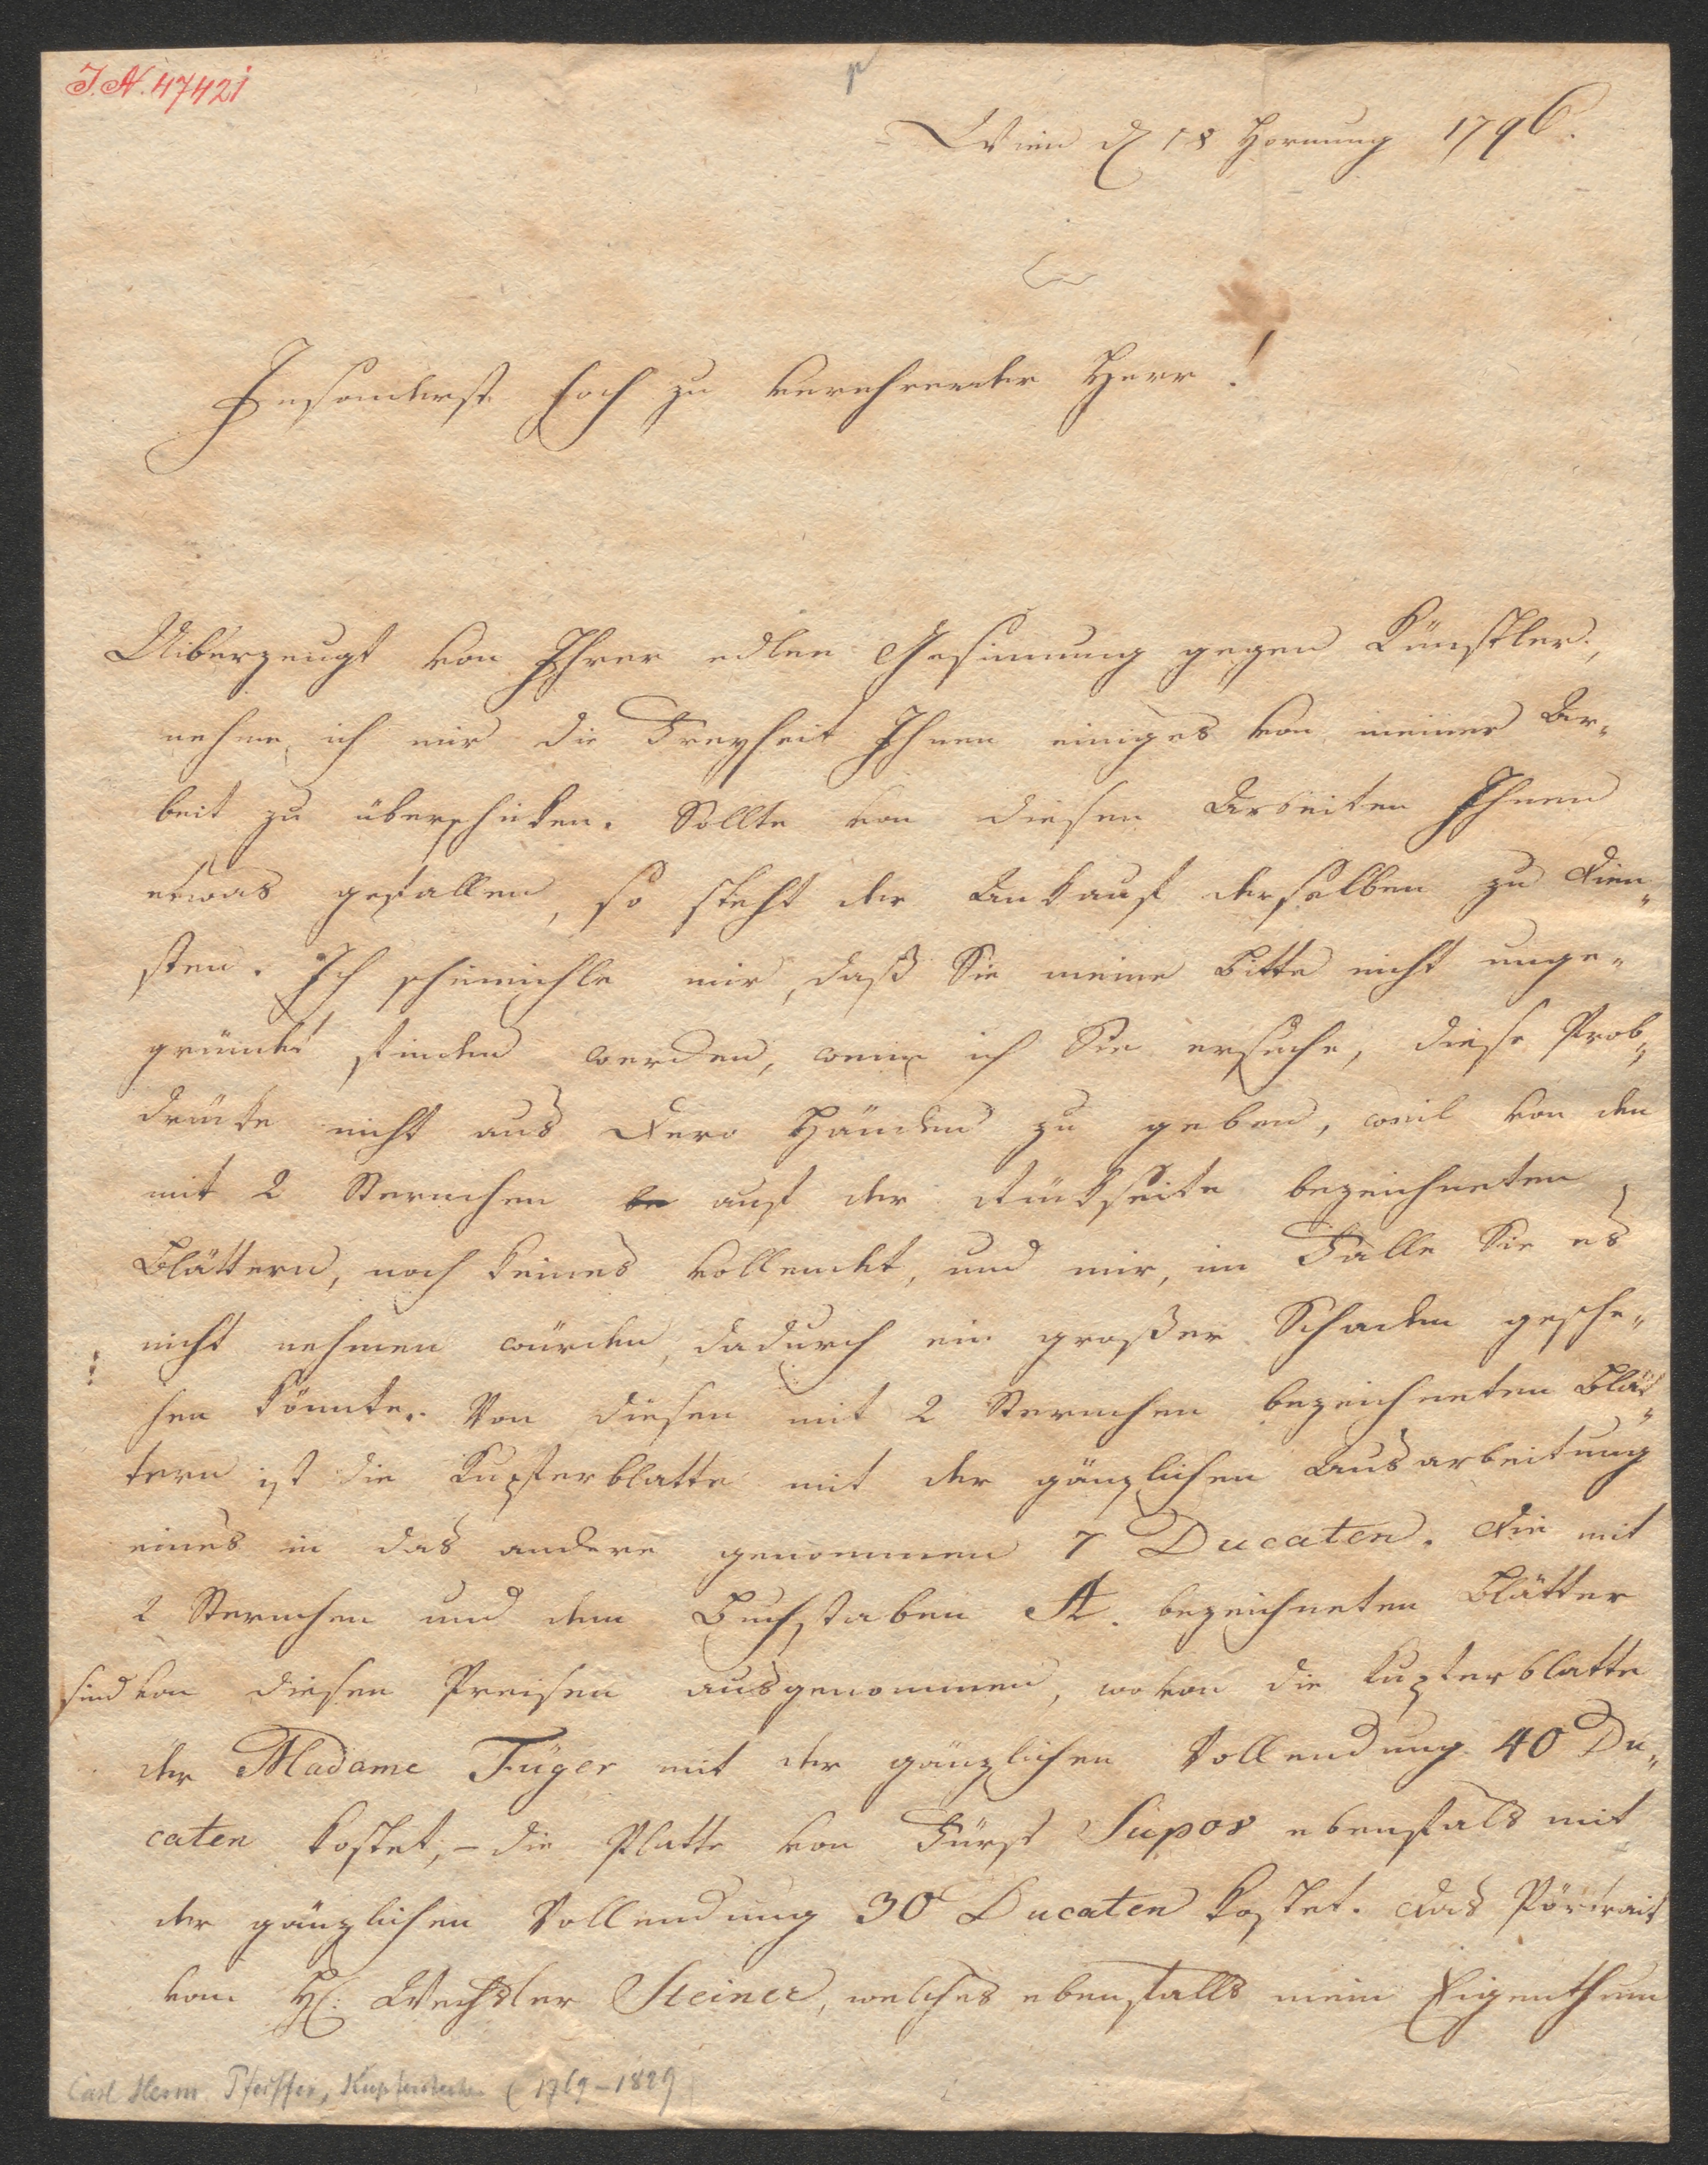 I. N. 47421
Wien d 18 Hornung 1796.
Insonderst hoch zu verehrender Herr!
Uiberzeugt von Ihrer edlen Gesinnung gegen Künstler,
nehme ich mir die Freyheit Ihnen einiges von meiner Ar„
beit zu überschicken. Sollte von diesen Arbeiten Ihnen
etwas gefallen, so steht der Ankauf derselben zu Dien„
sten. Ich schmeichle mir, daß Sie meine Bitte nicht unge„
gründet finden werden, wenn ich Sie ersuche, diese Prob„
drücke nicht aus Dero Händen zu geben, weil von den
mit 2 Sternchen be auf der Rückseite bezeichneten
Blättern, noch keines vollendet, und mir, im Falle Sie es
nicht nehmen würden, dadurch ein großer Schaden gesche„
hen könnte. Von diesen mit 2 Sternchen bezeichneten Blät„
tern ist die Kupferblatte mit der gänzlichen Ausarbeitung
eines in das andere genommen 7 Ducaten. Die mit
2 Sternchen und dem Buchstaben A. bezeichneten Blätter
sind von diesen Preisen ausgenommen, wovon die Kupferblatte
der Madame Füger mit der gänzlichen Vollendung 40 Du„
caten kostet, – die Platte von Fürst Supov ebenfals mit
der gänzlichen Vollendung 30 Ducaten kostet. Das Pörtrait
vom H: Wechsler Steiner, welches ebenfalls mein Eigenthum
Carl Herm. Pfeiffer, Kupferstecher (1769–1829)